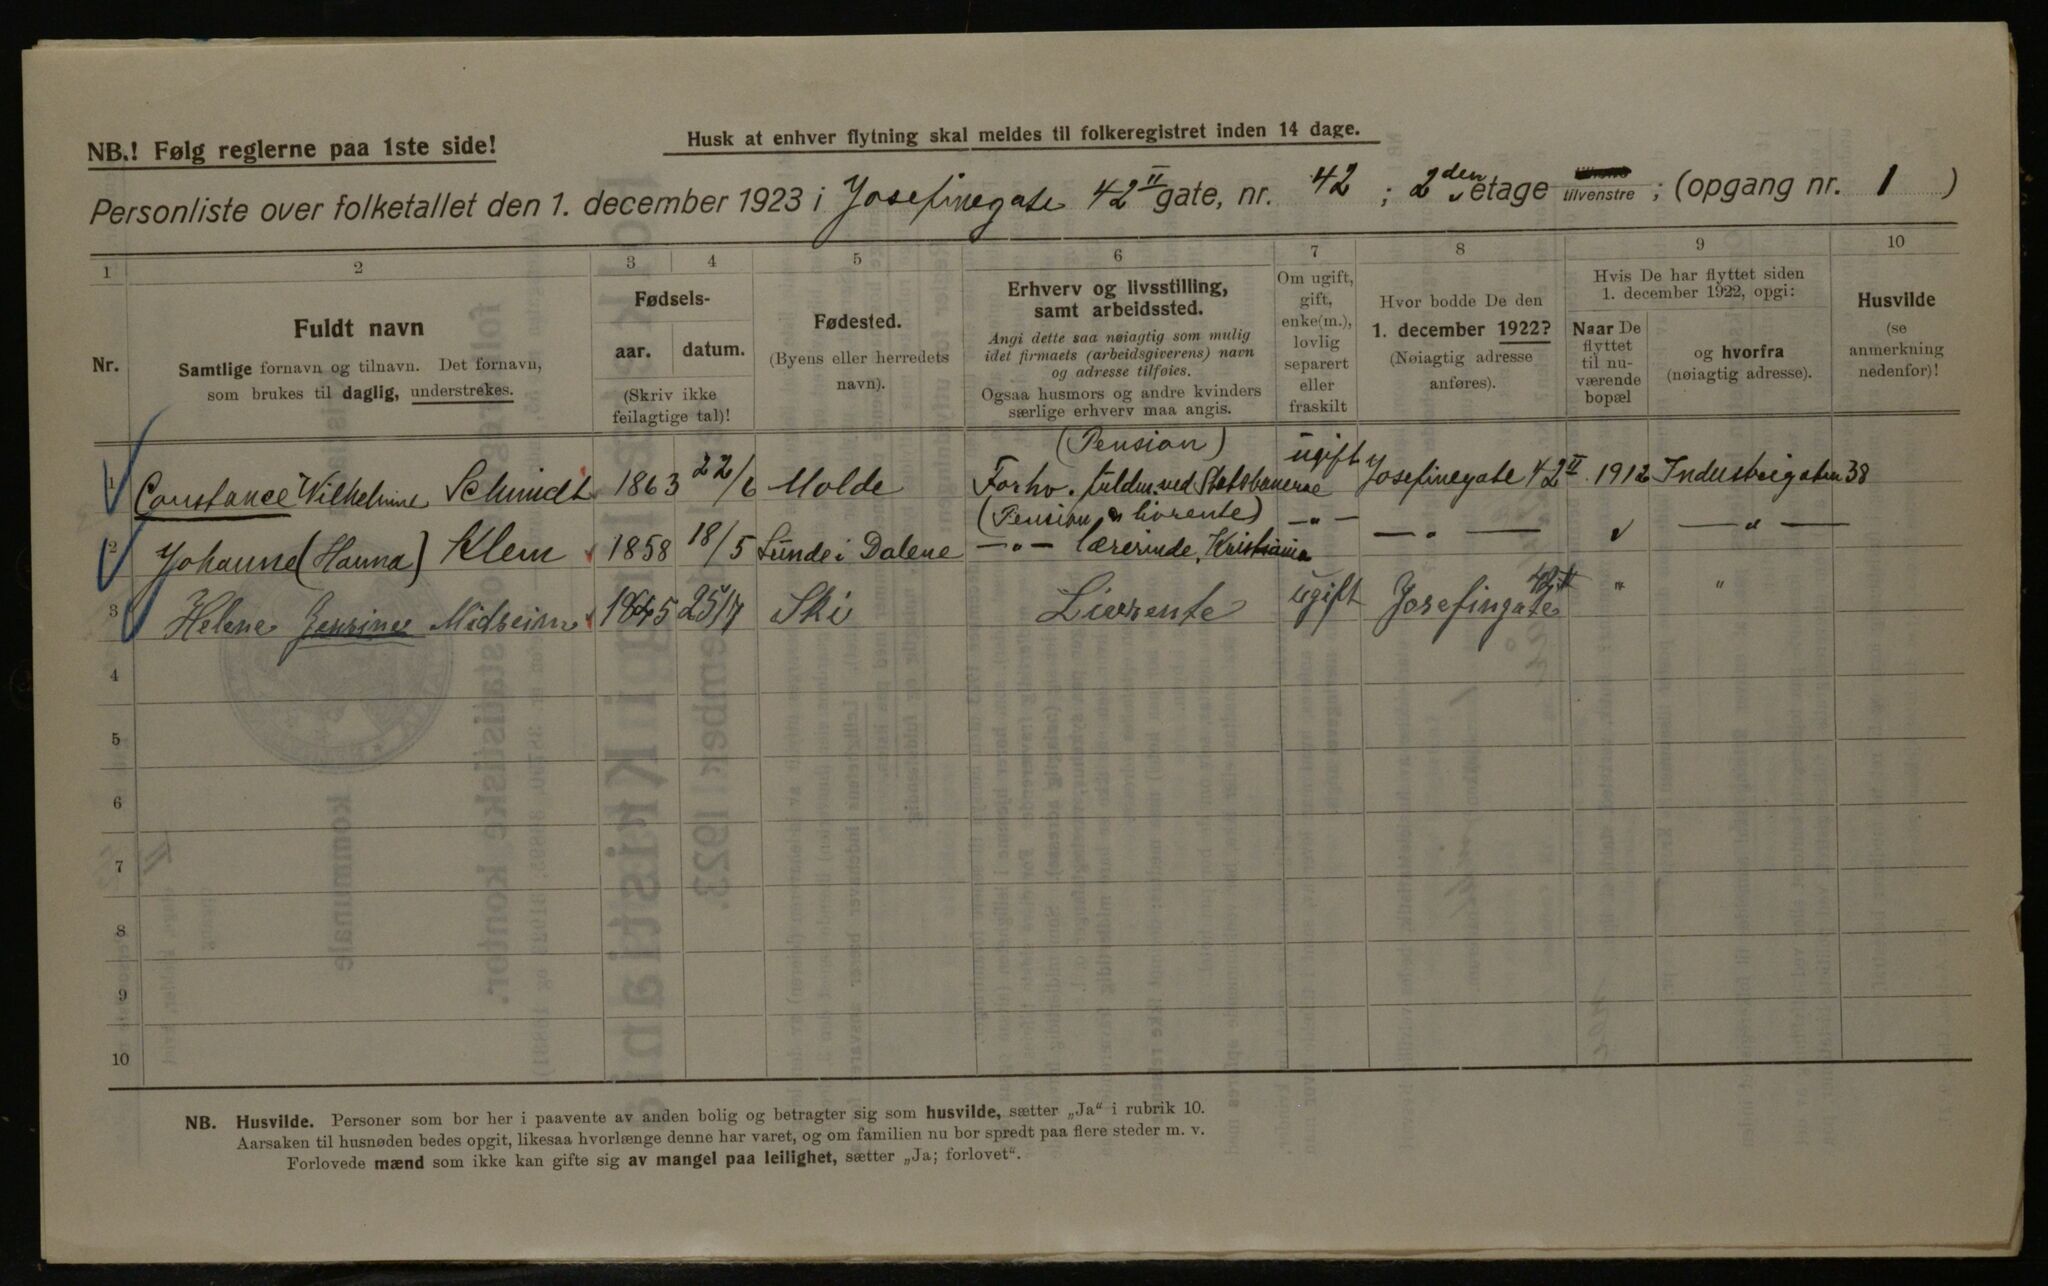 Husk at enhver flytning skal meldes til folkeregistret inden 14 dage.
NB.! Følg reglerne paa 1ste side!
Personliste over folketallet den 1. december 1923 i Josefinegate 42 II gate, nr. 42 ; 2den etage tilvenstre ; (opgang nr. 1 )
1 2 3 4 5 6 7 8 9 10
Nr.
Fuldt navn
Samtlige fornavn og tilnavn. Det fornavn,
som brukes til daglig, understrekes.
Fødsels-
aar. datum.
(Skriv ikke
feilagtige tal)!
Fødested.
(Byens eller herredets
navn).
Erhverv og livsstilling,
samt arbeidssted.
Angi dette saa nøiagtig som mulig
idet firmaets (arbeidsgiverens) navn
og adresse tilføies.
Ogsaa husmors og andre kvinders
særlige erhverv maa angis.
Om ugift,
gift,
enke(m.),
lovlig
separert
eller
fraskilt
Hvor bodde De den
1. december 1922?
(Nøiagtig adresse
anføres).
Hvis De har flyttet siden
1. december 1922, opgi:
Naar De
flyttet
til nu-
værende
bopæl
og hvorfra
(nøiagtig adresse).
Husvilde
(se
anmerkning
nedenfor)!
(Pension)
1 Constance Wilhelmine Schmidt 1863 22/6 Molde Forhv. fuldm. ved Statsbanerne ugift Josefinegate 42 II 1912 Industrigaten 38
(Pension & livrente)
2 Johanne (Hanna) Klem 1858 18/5 Lunde i Dalene —„— lærerinde, Kristiania —„— —„— —„—
3 Helene Jensine Midseim 1845 25/7 Ski Livrente ugift Josefingate 42 II „ „
4
5
6
7
8
9
10
NB. Husvilde. Personer som bor her i paavente av anden bolig og betragter sig som husvilde, sætter „Ja“ i rubrik 10.
Aarsaken til husnøden bedes opgit, likesaa hvorlænge denne har varet, og om familien nu bor spredt paa flere steder m. v.
Forlovede mænd som ikke kan gifte sig av mangel paa leilighet, sætter „Ja; forlovet“.